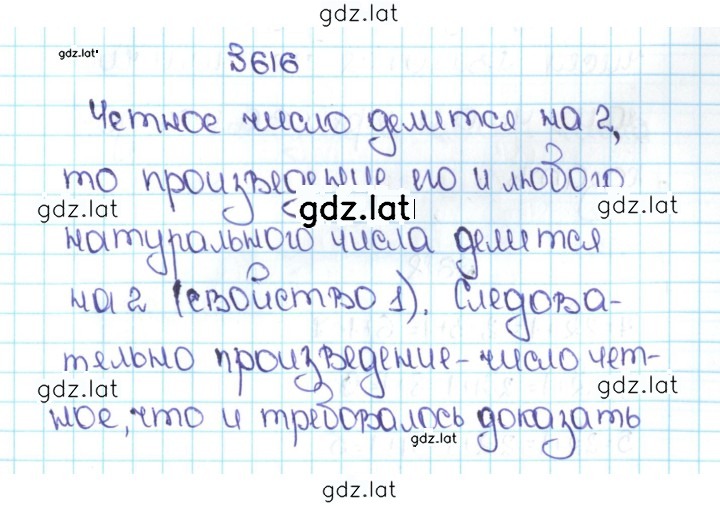 gdz.lat
gdz.lat
3616
Четное число делится на 2,
то произведение его и любого
gdz.lat
gdz.lat
gdz.lat
натурального числа делится
на 2 (свойство 1). Следова-
тельно произведение - число чет-
gdz.lat
gdz.lat
ное, что и требовалось доказать
gdz.lat
gdz.lat